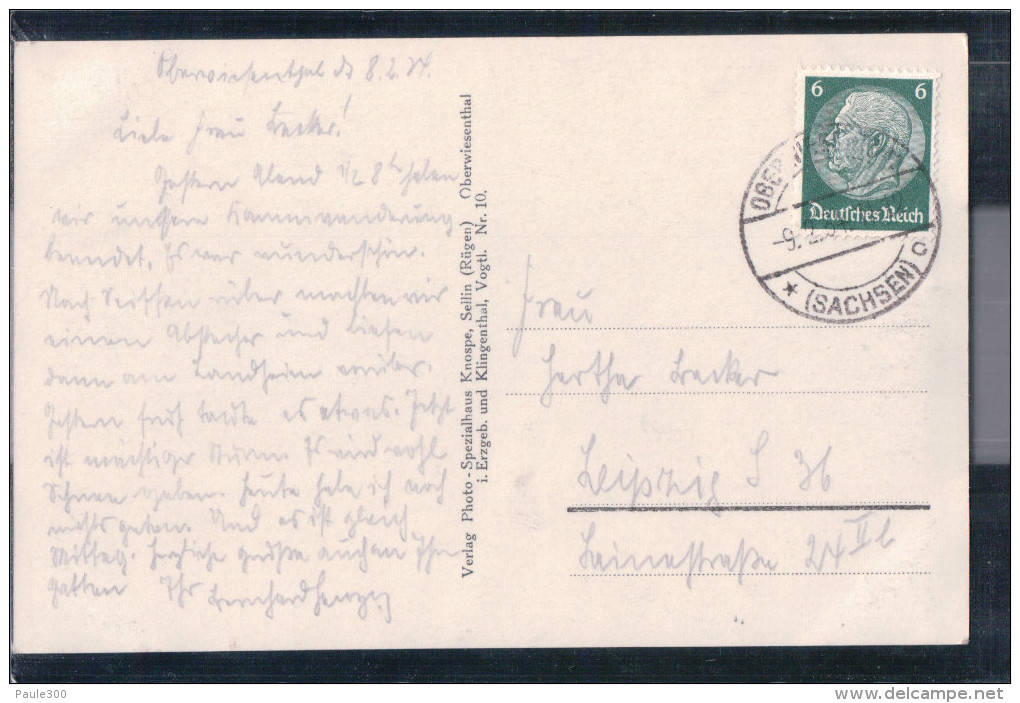 Oberwiesenthal d 8.2.34.
Liebe Frau Becker!
Gestern Abend 1/2 8h haben
wir unsere Kammwanderung
beendet. Es war wunderschön.
Nach Seiffen rüber machten wir
einen Abstecher und liefen
dann am Landheim vorüber.
Gestern früh taute es etwas. Jetzt
ist mächtiger Sturm. Es wird wohl
Schnee geben. Heute habe ich noch
nichts getan. Und es ist gleich
Mittag. Herzliche Grüße auch an Ihren
Gatten Ihr Bernhard
Verlag Photo-Spezialhaus Knospe, Sellin (Rügen) Oberwiesenthal
i. Erzgeb. und Klingenthal, Vogtl. Nr. 10.
6 6
Deutsches Reich
OBERWIESENTHAL
-9.2.34
* (SACHSEN) c
Frau
Hertha Becker
Leipzig S 36
Lainestraße 24 II b
Paule300
http://www.delcampe.net